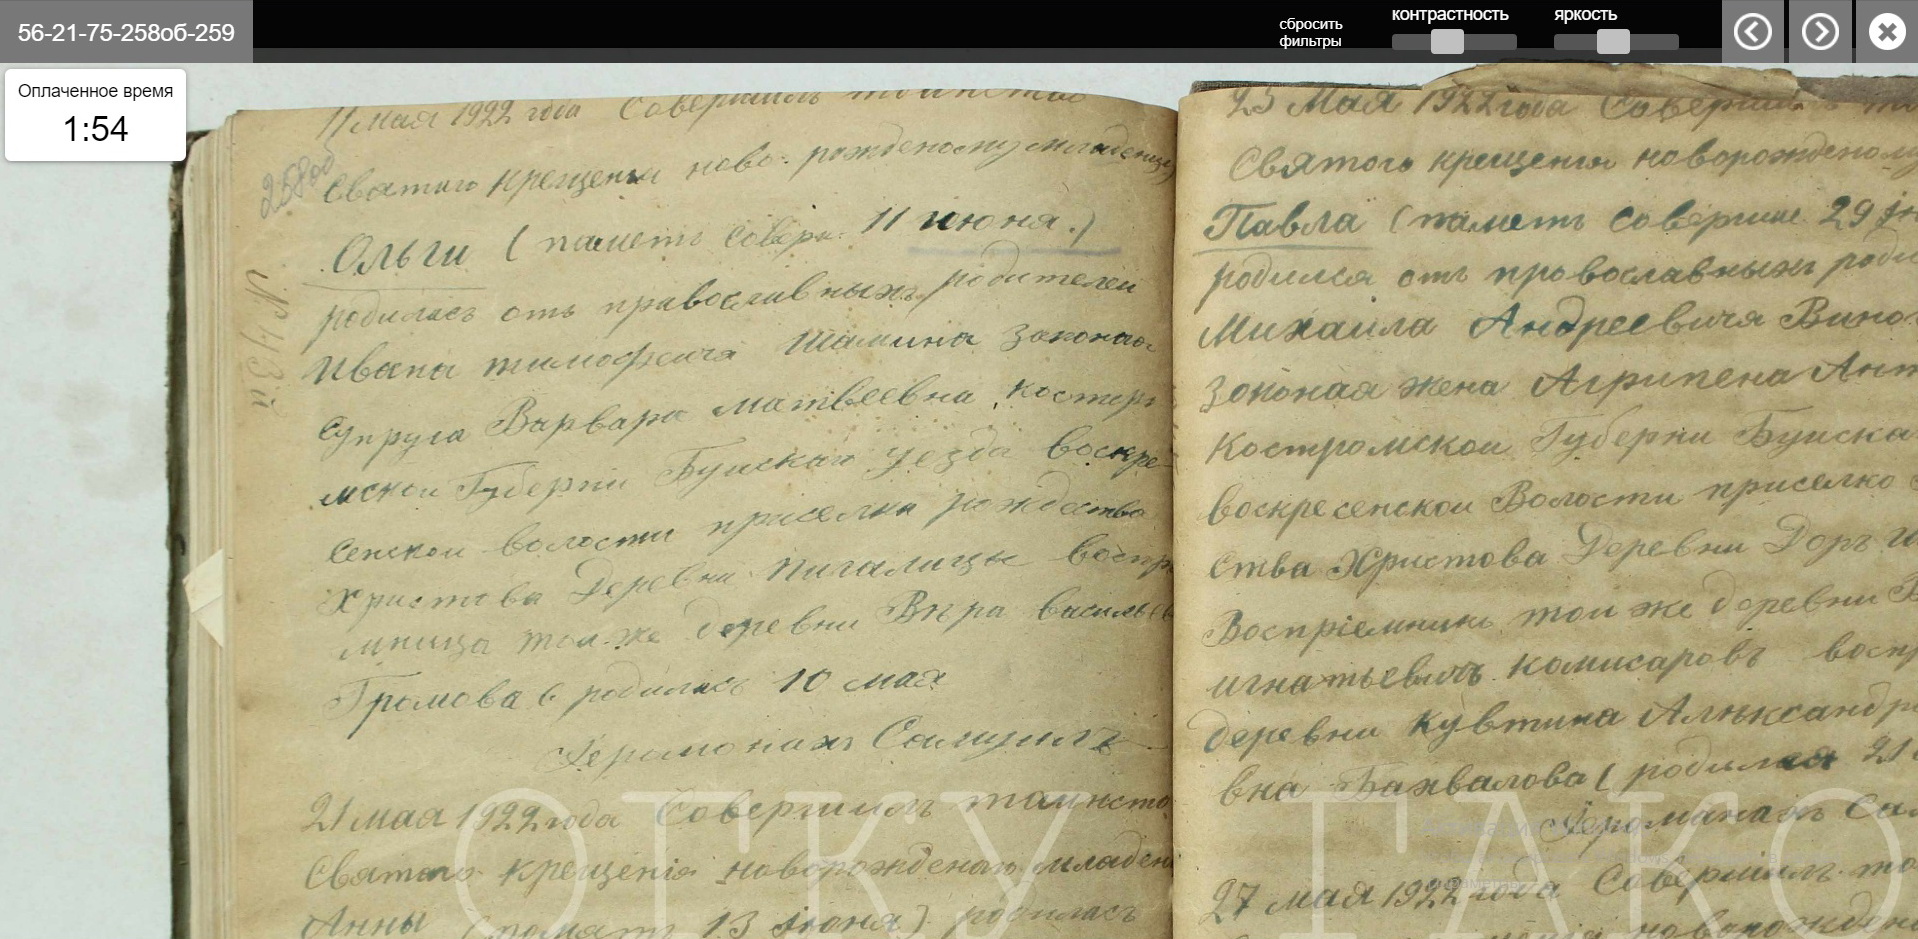 56-21-75-258об-259
сбросить
фильтры
контрастность
яркость
Оплаченное время
1:54
258об
№ 43й
11 мая 1922 года Совершилъ таинство
Святаго крещенья ново-рожденому младенцу
Ольги ( паметь соверш. 11 июня.)
родилась отъ православныхъ родителей
Ивана тимофеича Шамина законая
супруга Варвара матвеевна костро-
мской Губернии Буйскаго уезда воскре-
сенской волости приселка рождества
Христова Деревни Пигалицы воспр
мница той-же деревни Вѣра василье
Громова ( родилась 10 мая
Иеромонахъ Самуилъ
21 мая 1922 года Совершилъ таинство
Святаго крещенія новорожденаго младен
Анны (помять 13 Июня) родилась
23 Мая 1922 года Совершилъ та
Святого крещенья новорожденому
Павла (паметь соверши 29 Ию
родился отъ провославныхъ роди
Михаила Андреевича Вино
Законая жена Агрипена Ант
Костромской Губерни Буйска
воскресенской Волости приселко
ства Христова Деревни Доръ
Воспріемникъ той же деревни В
игнатьевичъ комисаровъ воспр
деревни Кувтина Алькасандро
вна Бахвалова ( родился 21
Иероманахъ Сам
27 мая 1922 года Совершилъ та
новорожден
ОГКУ ГАКО